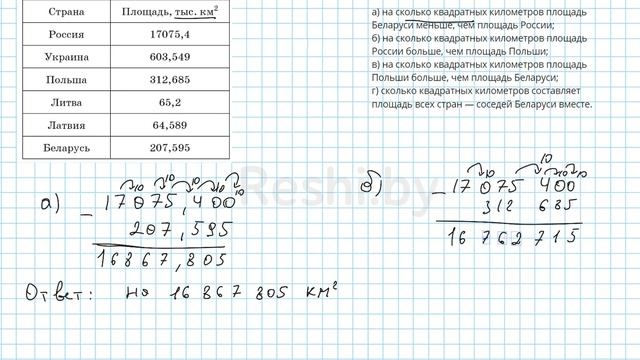 Страна Площадь, тыс. км²
Россия 17075,4
Украина 603,549
Польша 312,685
Литва 65,2
Латвия 64,589
Беларусь 207,595
а) на сколько квадратных километров площадь
Беларуси меньше, чем площадь России;
б) на сколько квадратных километров площадь
России больше, чем площадь Польши;
в) на сколько квадратных километров площадь
Польши больше, чем площадь Беларуси;
г) сколько квадратных километров составляет
площадь всех стран — соседей Беларуси вместе.
10 10 10 10 10
а) - 17075,400
207,595
16867,805
Ответ: на 16 867 805 км²
10 10 10 10
б) - 17 075 400
312 685
16 762 715
Reshi.by